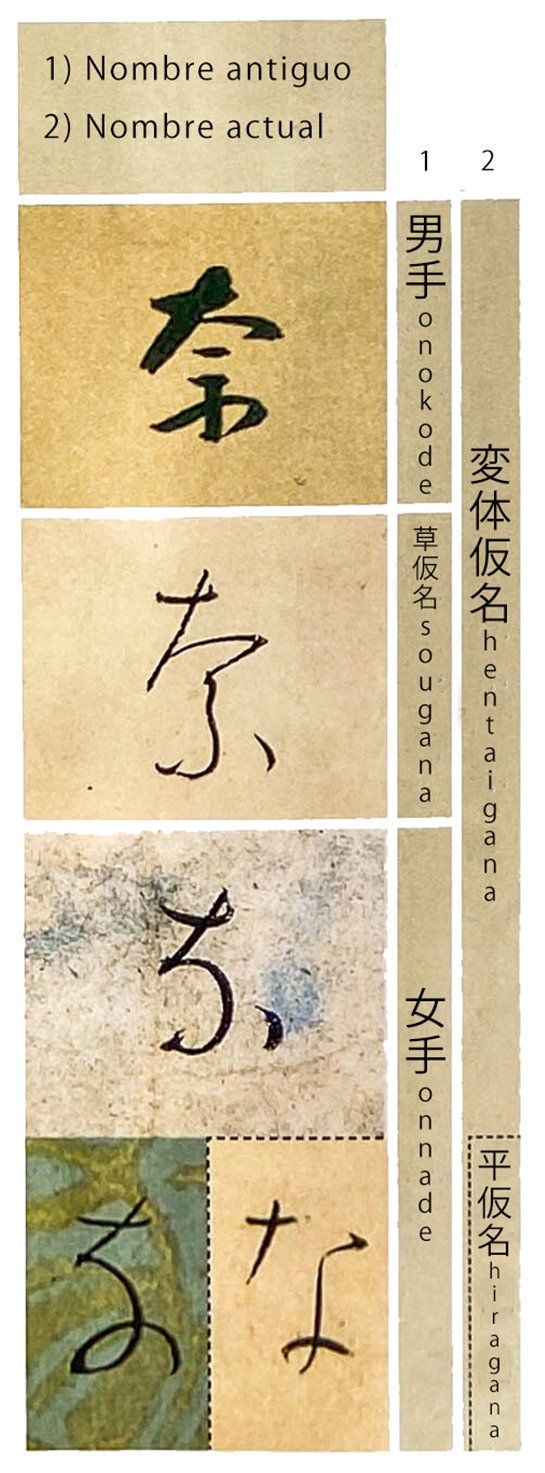 1) Nombre antiguo
2) Nombre actual
1 2
奈
男手 onokode
変体仮名 hentaigana
草仮名 sougana
女手 onnade
な
平仮名 hiragana